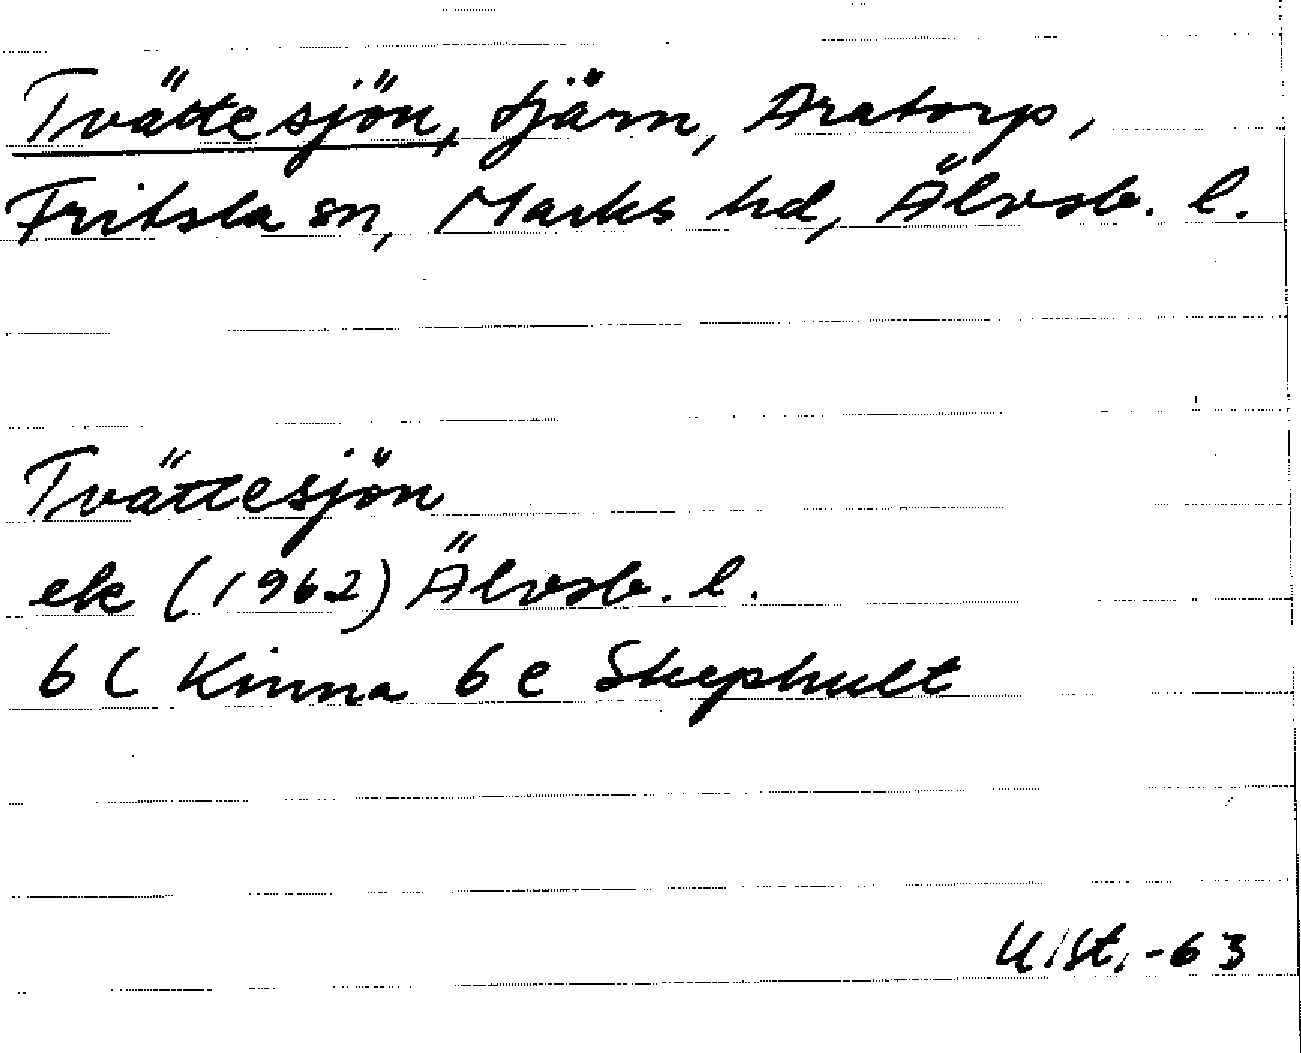 Tvättesjön, tjärn, Aratorp,
Fritsla sn, Marks hd, Älvsb. l.
Tvättesjön
ek (1962) Älvsb. l.
6 C Kinna 6 e Skephult
-63